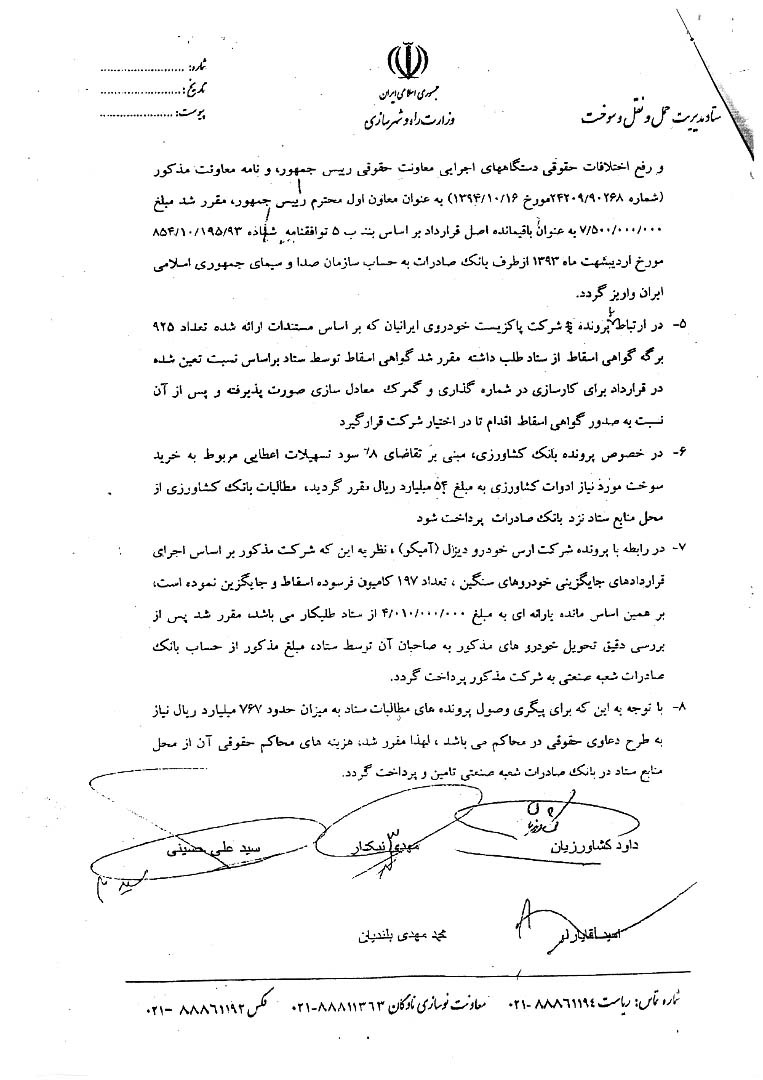 شماره: ........................
تاریخ: ........................
پیوست: ......................
جمهوری اسلامی ایران
وزارت راه و شهرسازی
ستاد مدیریت حمل و نقل و سوخت
و رفع اختلافات حقوقی دستگاههای اجرایی معاونت حقوقی رییس جمهور، و نامه معاونت مذکور
(شماره ۲۴۲۰۹/۹۰۲۶۸مورخ ۱۳۹۴/۱۰/۱۶) به عنوان معاون اول محترم رییس جمهور، مقرر شد مبلغ
۷/۵۰۰/۰۰۰/۰۰۰ به عنوان باقیمانده اصل قرارداد بر اساس بند ب ۵ توافقنامه ۸۵۴/۱۰/۱۹۵/۹۳
مورخ اردیبهشت ماه ۱۳۹۳ ازطرف بانک صادرات به حساب سازمان صدا و سیمای جمهوری اسلامی
ایران واریز گردد.
۵- در ارتباط پرونده شرکت پاکزیست خودروی ایرانیان که بر اساس مستندات ارائه شده تعداد ۹۲۵
برگه گواهی اسقاط از ستاد طلب داشته مقرر شد گواهی اسقاط توسط ستاد براساس نسبت تعین شده
در قرارداد برای کارسازی در شماره گذاری و گمرک معادل سازی صورت پذیرفته و پس از آن
نسبت به صدور گواهی اسقاط اقدام تا در اختیار شرکت قرارگیرد
۶- در خصوص پرونده بانک کشاورزی، مبنی بر تقاضای ۸٪ سود تسهیلات اعطایی مربوط به خرید
سوخت مورد نیاز ادوات کشاورزی به مبلغ ۵۴ میلیارد ریال مقرر گردید، مطالبات بانک کشاورزی از
محل منابع ستاد نزد بانک صادرات پرداخت شود
۷- در رابطه با پرونده شرکت ارس خودرو دیزل (آمیکو) ، نظر به این که شرکت مذکور بر اساس اجرای
قراردادهای جایگزینی خودروهای سنگین ، تعداد ۱۹۷ کامیون فرسوده اسقاط و جایگزین نموده است،
بر همین اساس مانده یارانه ای به مبلغ ۴/۰۱۰/۰۰۰/۰۰۰ از ستاد طلبکار می باشد، مقرر شد پس از
بررسی دقیق تحویل خودرو های مذکور به صاحبان آن توسط ستاد، مبلغ مذکور از حساب بانک
صادرات شعبه صنعتی به شرکت مذکور پرداخت گردد.
۸- با توجه به این که برای پیگری وصول پرونده های مطالبات ستاد به میزان حدود ۷۶۷ میلیارد ریال نیاز
به طرح دعاوی حقوقی در محاکم می باشد ، لهذا مقرر شد، هزینه های محاکم حقوقی آن از محل
منابع ستاد در بانک صادرات شعبه صنعتی تامین و پرداخت گردد.
داود کشاورزیان مهدی نیکدار سید علی حسینی
محمد مهدی بلندیان
شماره تماس: ریاست ۸۸۸۶۱۱۹۴ -۰۲۱ معاونت نوسازی ناوگان ۸۸۸۱۱۳۶۳-۰۲۱ فکس ۸۸۸۶۱۱۹۲ -۰۲۱